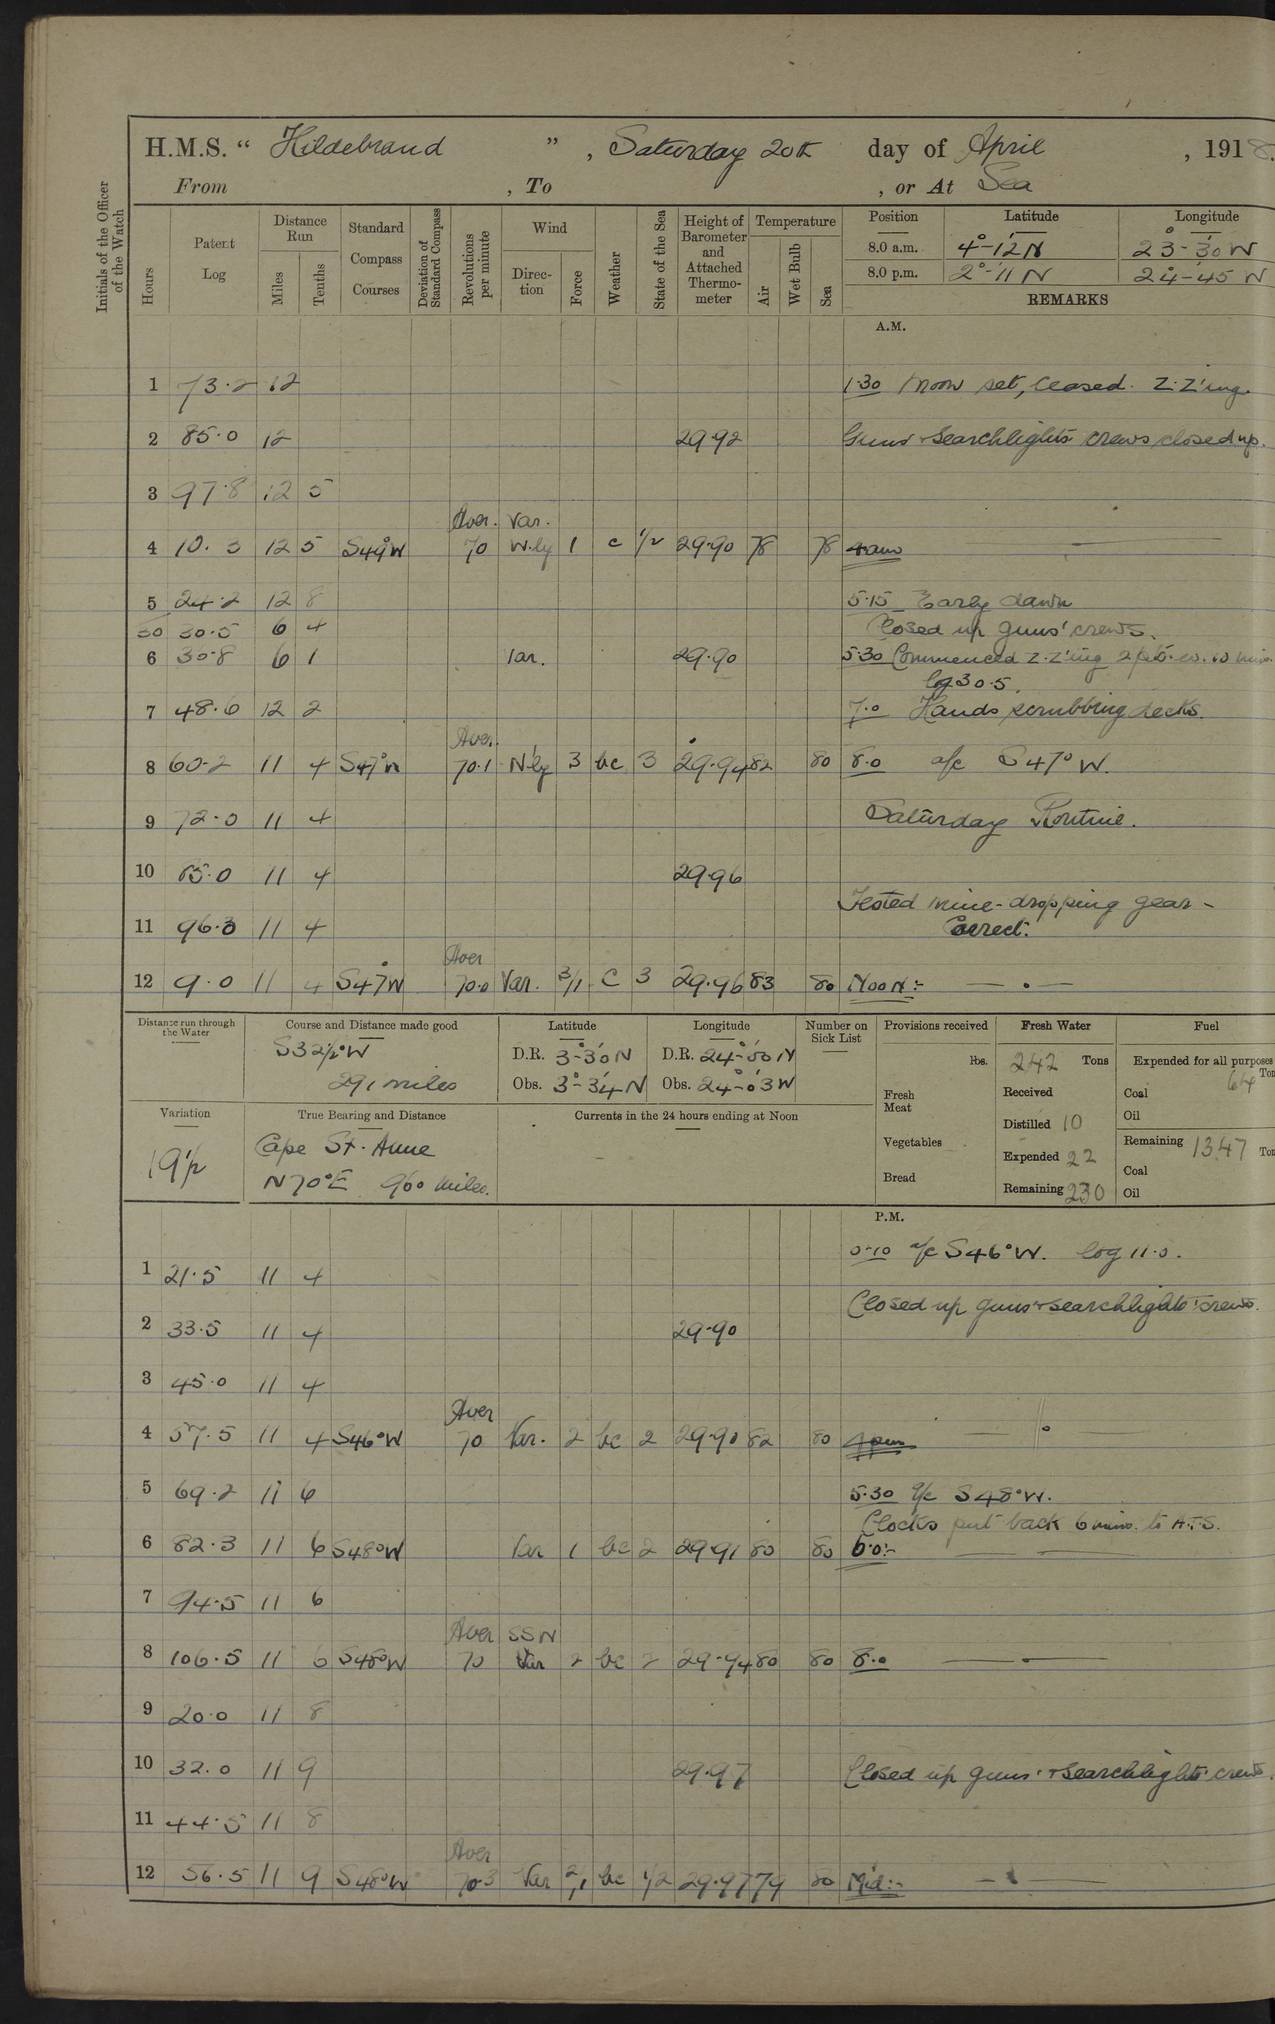 H.M.S. “ Hildebrand ” , Saturday 20th day of April , 1918.
From , To , or At Sea
Initials of the Officer of the Watch
Hours
Patent Log
Distance Run
Miles
Tenths
Standard Compass Courses
Deviation of Standard Compass
Revolutions per minute
Wind
Direc-tion
Force
Weather
State of the Sea
Height of Barometer and Attached Thermo-meter
Temperature
Air
Wet Bulb
Sea
Position Latitude Longitude
8.0 a.m. 4°-12'N 23°-30'W
8.0 p.m. 2°-11 N 24°-45 W
REMARKS
A.M.
1 73.2 12 1.30 Moon set, Ceased Z.Z'ing.
2 85.0 12 29.92 Guns & Searchlights crews closed up.
3 97.8 12 5
Aver. Var.
4 10.3 12 5 S49°W 70 W.ly 1 c 1/2 29.90 78 78 4am
5 24.2 12 8 5.15 Early dawn
30 30.5 6 4 Closed up guns' crews.
6 30.8 6 1 Var. 29.90 5.30 Commenced Z.Z'ing
log 30.5.
7 48.6 12 2 7.0 Hands scrubbing decks.
Aver.
8 60.2 11 4 S47°W 70.1 N'ly 3 bc 3 29.94 82 80 8.0 a/c S47°W.
9 72.0 11 4 Saturday Routine.
10 85.0 11 4 29.96
Tested mine-dropping gear -
11 96.3 11 4 Correct.
Aver
12 9.0 11 4 S47°W 70.0 Var. 3/1 C 3 29.96 83 80 Noon:-
Distance run through the Water
Course and Distance made good
S32½°W
291 miles
Latitude
D.R. 3°-30'N
Obs. 3°-34'N
Longitude
D.R. 24°-00'W
Obs. 24°-03'W
Number on Sick List
Provisions received
lbs.
Fresh Meat
Vegetables
Bread
Fresh Water
242 Tons
Received
Distilled 10
Expended 22
Remaining 230
Fuel
Expended for all purposes
64 Ton
Coal
Oil
Remaining 1347 Ton
Coal
Oil
Variation
19½
True Bearing and Distance
Cape St. Anne
N70°E 960 miles.
Currents in the 24 hours ending at Noon
P.M.
0.10 a/c S46°W. log 11.0.
1 21.5 11 4
Closed up guns & searchlights' crews.
2 33.5 11 4 29.90
3 45.0 11 4
Aver
4 57.5 11 4 S46°W 70 Var. 2 bc 2 29.90 82 80 4pm
5 69.2 11 6 5.30 a/c S48°W.
Clocks put back 6 mins. to A.T.S.
6 82.3 11 6 S48°W Var 1 bc 2 29.91 80 80 6.0:-
7 94.5 11 6
Aver SSW
8 106.5 11 6 S48°W 70 Var 2 bc 2 29.94 80 80 8.0
9 20.0 11 8
10 32.0 11 9 29.97 Closed up guns' & searchlights' crews.
11 44.5 11 8
Aver
12 56.5 11 9 S48°W 70.3 Var 2/1 bc 1/2 29.97 79 80 Mid:-